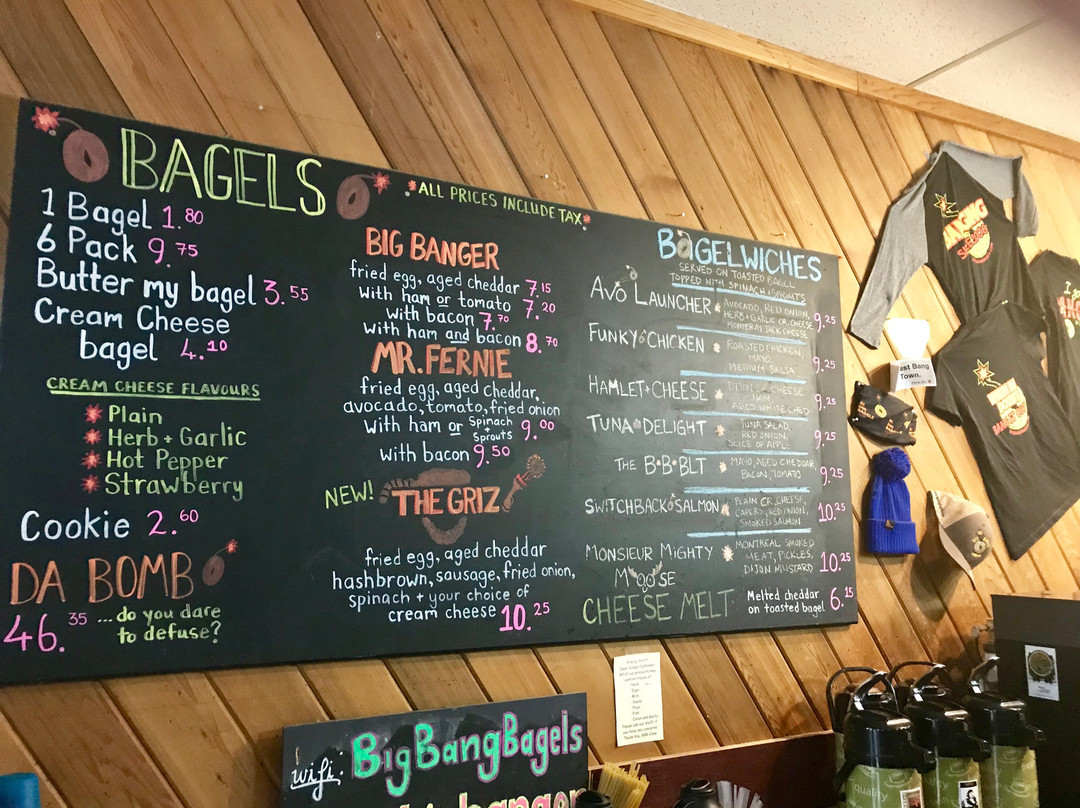 BAGELS
*ALL PRICES INCLUDE TAX*
1 Bagel 1.80
6 Pack 9.75
Butter my bagel 3.55
Cream Cheese
bagel 4.10
CREAM CHEESE FLAVOURS
Plain
Herb + Garlic
Hot Pepper
Strawberry
Cookie 2.60
DA BOMB
46.35 ...do you dare
to defuse?
BIG BANGER
fried egg, aged cheddar 7.15
with ham or tomato 7.20
with bacon 7.70
with ham and bacon 8.70
MR. FERNIE
fried egg, aged cheddar,
avocado, tomato, fried onion
with ham or Spinach Sprouts 9.00
with bacon 9.50
NEW! THE GRIZ
fried egg, aged cheddar
hashbrown, sausage, fried onion,
spinach + your choice of
cream cheese 10.25
BAGELWICHES
SERVED ON TOASTED BAGEL
TOPPED WITH SPINACH + SPROUTS
AVO LAUNCHER AVOCADO, RED ONION,
HERB + GARLIC CR. CHEESE,
MONTEREY JACK CHEESE 9.25
FUNKY CHICKEN ROASTED CHICKEN,
MAYO,
MEDIUM SALSA 9.25
HAMLET + CHEESE
HAM,
9.25
TUNA DELIGHT TUNA SALAD,
RED ONION,
SLICE OF APPLE 9.25
THE B•B•BLT MAYO, AGED CHEDDAR,
BACON, TOMATO 9.25
SWITCHBACK SALMON PLAIN CR. CHEESE,
CAPERS, RED ONION,
SMOKED SALMON 10.25
MONSIEUR MIGHTY MOOSE MONTREAL SMOKED
MEAT, PICKLES,
DIJON MUSTARD 10.25
CHEESE MELT Melted cheddar
on toasted bagel 6.15
wifi: BigBangBagels
East Bang
Town.
quality